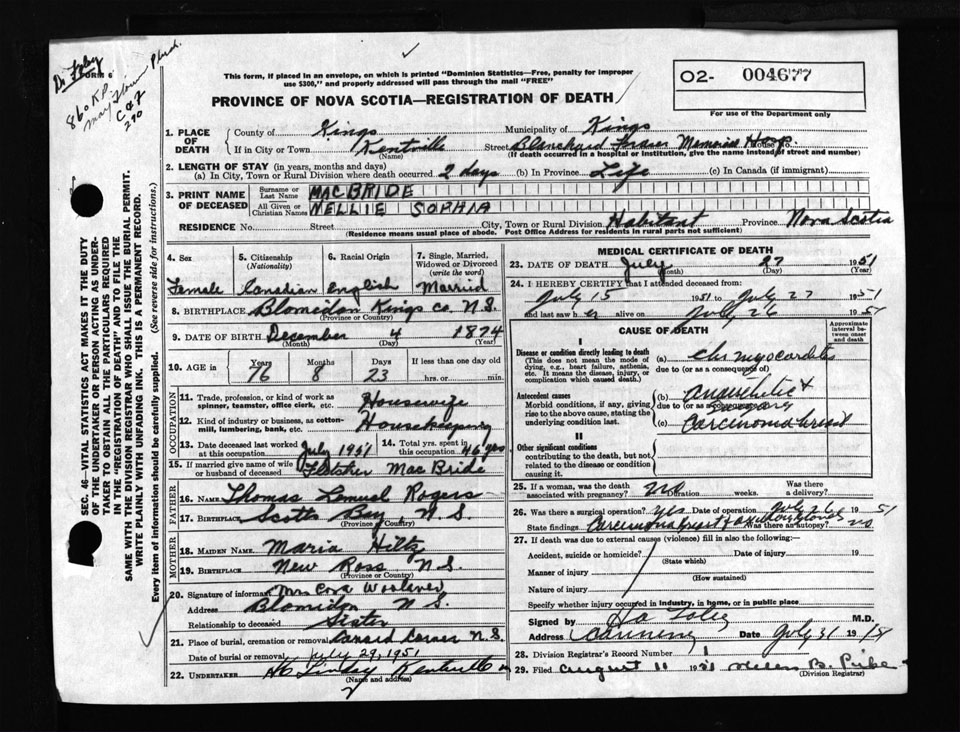 Dr. Foley
FORM 6
860 K.P.
C & F
290
This form, if placed in an envelope, on which is printed "Dominion Statistics—Free, penalty for improper
use $300," and properly addressed will pass through the mail "FREE"
PROVINCE OF NOVA SCOTIA—REGISTRATION OF DEATH
O2- 004677
For use of the Department only
1. PLACE OF DEATH County of Kings Municipality of Kings
If in City or Town Kentville (Name) Street Blanchard Fraser Memorial Hosp No.
(If death occurred in a hospital or institution, give the name instead of street and number)
2. LENGTH OF STAY (in years, months and days)
(a) In City, Town or Rural Division where death occurred 2 days (b) In Province Life (c) In Canada (if immigrant)
3. PRINT NAME OF DECEASED
Surname or Last Name MACBRIDE
All Given or Christian Names NELLIE SOPHIA
RESIDENCE No. Street City, Town or Rural Division Habitant Province Nova Scotia
(Residence means usual place of abode. Post Office Address for residents in rural parts not sufficient)
SEC. 46—VITAL STATISTICS ACT MAKES IT THE DUTY
OF THE UNDERTAKER OR PERSON ACTING AS UNDER-
TAKER TO OBTAIN ALL THE PARTICULARS REQUIRED
IN THE "REGISTRATION OF DEATH" AND TO FILE THE
SAME WITH THE DIVISION REGISTRAR WHO SHALL ISSUE THE BURIAL PERMIT.
WRITE PLAINLY WITH UNFADING INK. THIS IS A PERMANENT RECORD.
Every item of information should be carefully supplied. (See reverse side for instructions.)
4. Sex 5. Citizenship (Nationality) 6. Racial Origin 7. Single, Married, Widowed or Divorced (write the word)
Female Canadian English Married
8. BIRTHPLACE Blomidon Kings Co. N.S.
(Province or Country)
9. DATE OF BIRTH December 4 1874
(Month) (Day) (Year)
10. AGE in Years Months Days If less than one day old
76 8 23 hrs. or min.
OCCUPATION
11. Trade, profession or kind of work as spinner, teamster, office clerk, etc. Housewife
12. Kind of industry or business, as cotton-mill, lumbering, bank, etc. Housekeeping
13. Date deceased last worked at this occupation July 1951 14. Total yrs. spent in this occupation 46 yrs
15. If married give name of wife or husband of deceased Fletcher MacBride
FATHER
16. NAME Thomas Lemuel Rogers
17. BIRTHPLACE Scotts Bay N.S.
(Province or Country)
MOTHER
18. MAIDEN NAME Maria Hiltz
19. BIRTHPLACE New Ross N.S.
(Province or Country)
20. Signature of informant Mrs Cora Woolaver
Address Blomidon N.S.
Relationship to deceased Sister
21. Place of burial, cremation or removal Canard Corner N.S.
Date of burial or removal July 29, 1951
22. UNDERTAKER Lindsay Kentville
(Name and address)
MEDICAL CERTIFICATE OF DEATH
23. DATE OF DEATH July 27 1951
(Month) (Day) (Year)
24. I HEREBY CERTIFY that I attended deceased from:
July 15 1951 to July 27 1951
and last saw her alive on July 26 1951
CAUSE OF DEATH
Approximate interval between onset and death
I
Disease or condition directly leading to death
(This does not mean the mode of dying, e.g., heart failure, asthenia, etc. It means the disease, injury, or complication which caused death.)
(a) chr myocarditis
due to (or as a consequence of)
Antecedent causes
Morbid conditions, if any, giving rise to the above cause, stating the underlying condition last.
(b) anaesthetic &
due to (or as a consequence of) surgery
(c) Carcinoma breast
II
Other significant conditions
contributing to the death, but not related to the disease or condition causing it.
25. If a woman, was the death associated with pregnancy? no Duration weeks. Was there a delivery?
26. Was there a surgical operation? yes Date of operation July 26 1951
State findings Carcinoma breast Was there an autopsy? no
27. If death was due to external causes (violence) fill in also the following:—
Accident, suicide or homicide? Date of injury 19
(State which)
Manner of injury
(How sustained)
Nature of injury
Specify whether injury occurred in industry, in home, or in public place
Signed by Foley M.D.
Address Canning Date July 31 19
28. Division Registrar's Record Number 1
29. Filed August 11 1951 Helen B.
(Division Registrar)